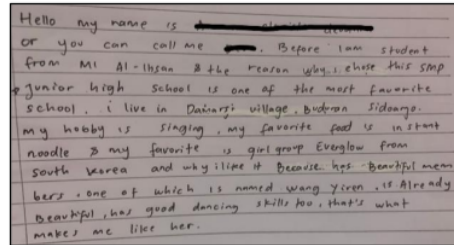 Hello my name is
or you can call me . Before I am student
from MI Al-Ihsan & the reason why i chose this smp
junior high school is one of the most favorite
school. i live in village, Buduran Sidoarjo.
my hobby is singing, my favorite food is instant
noodle & my favorite is girl group Everglow from
South Korea and why i like it Because has Beautiful mem
bers, one of which is named wang Yiren, is Already
Beautiful, has good dancing skills too, that's what
makes me like her.